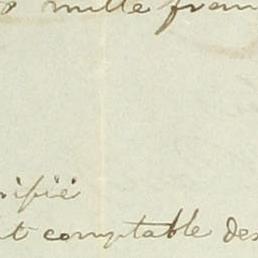 mille fran
rifié
t comptable des